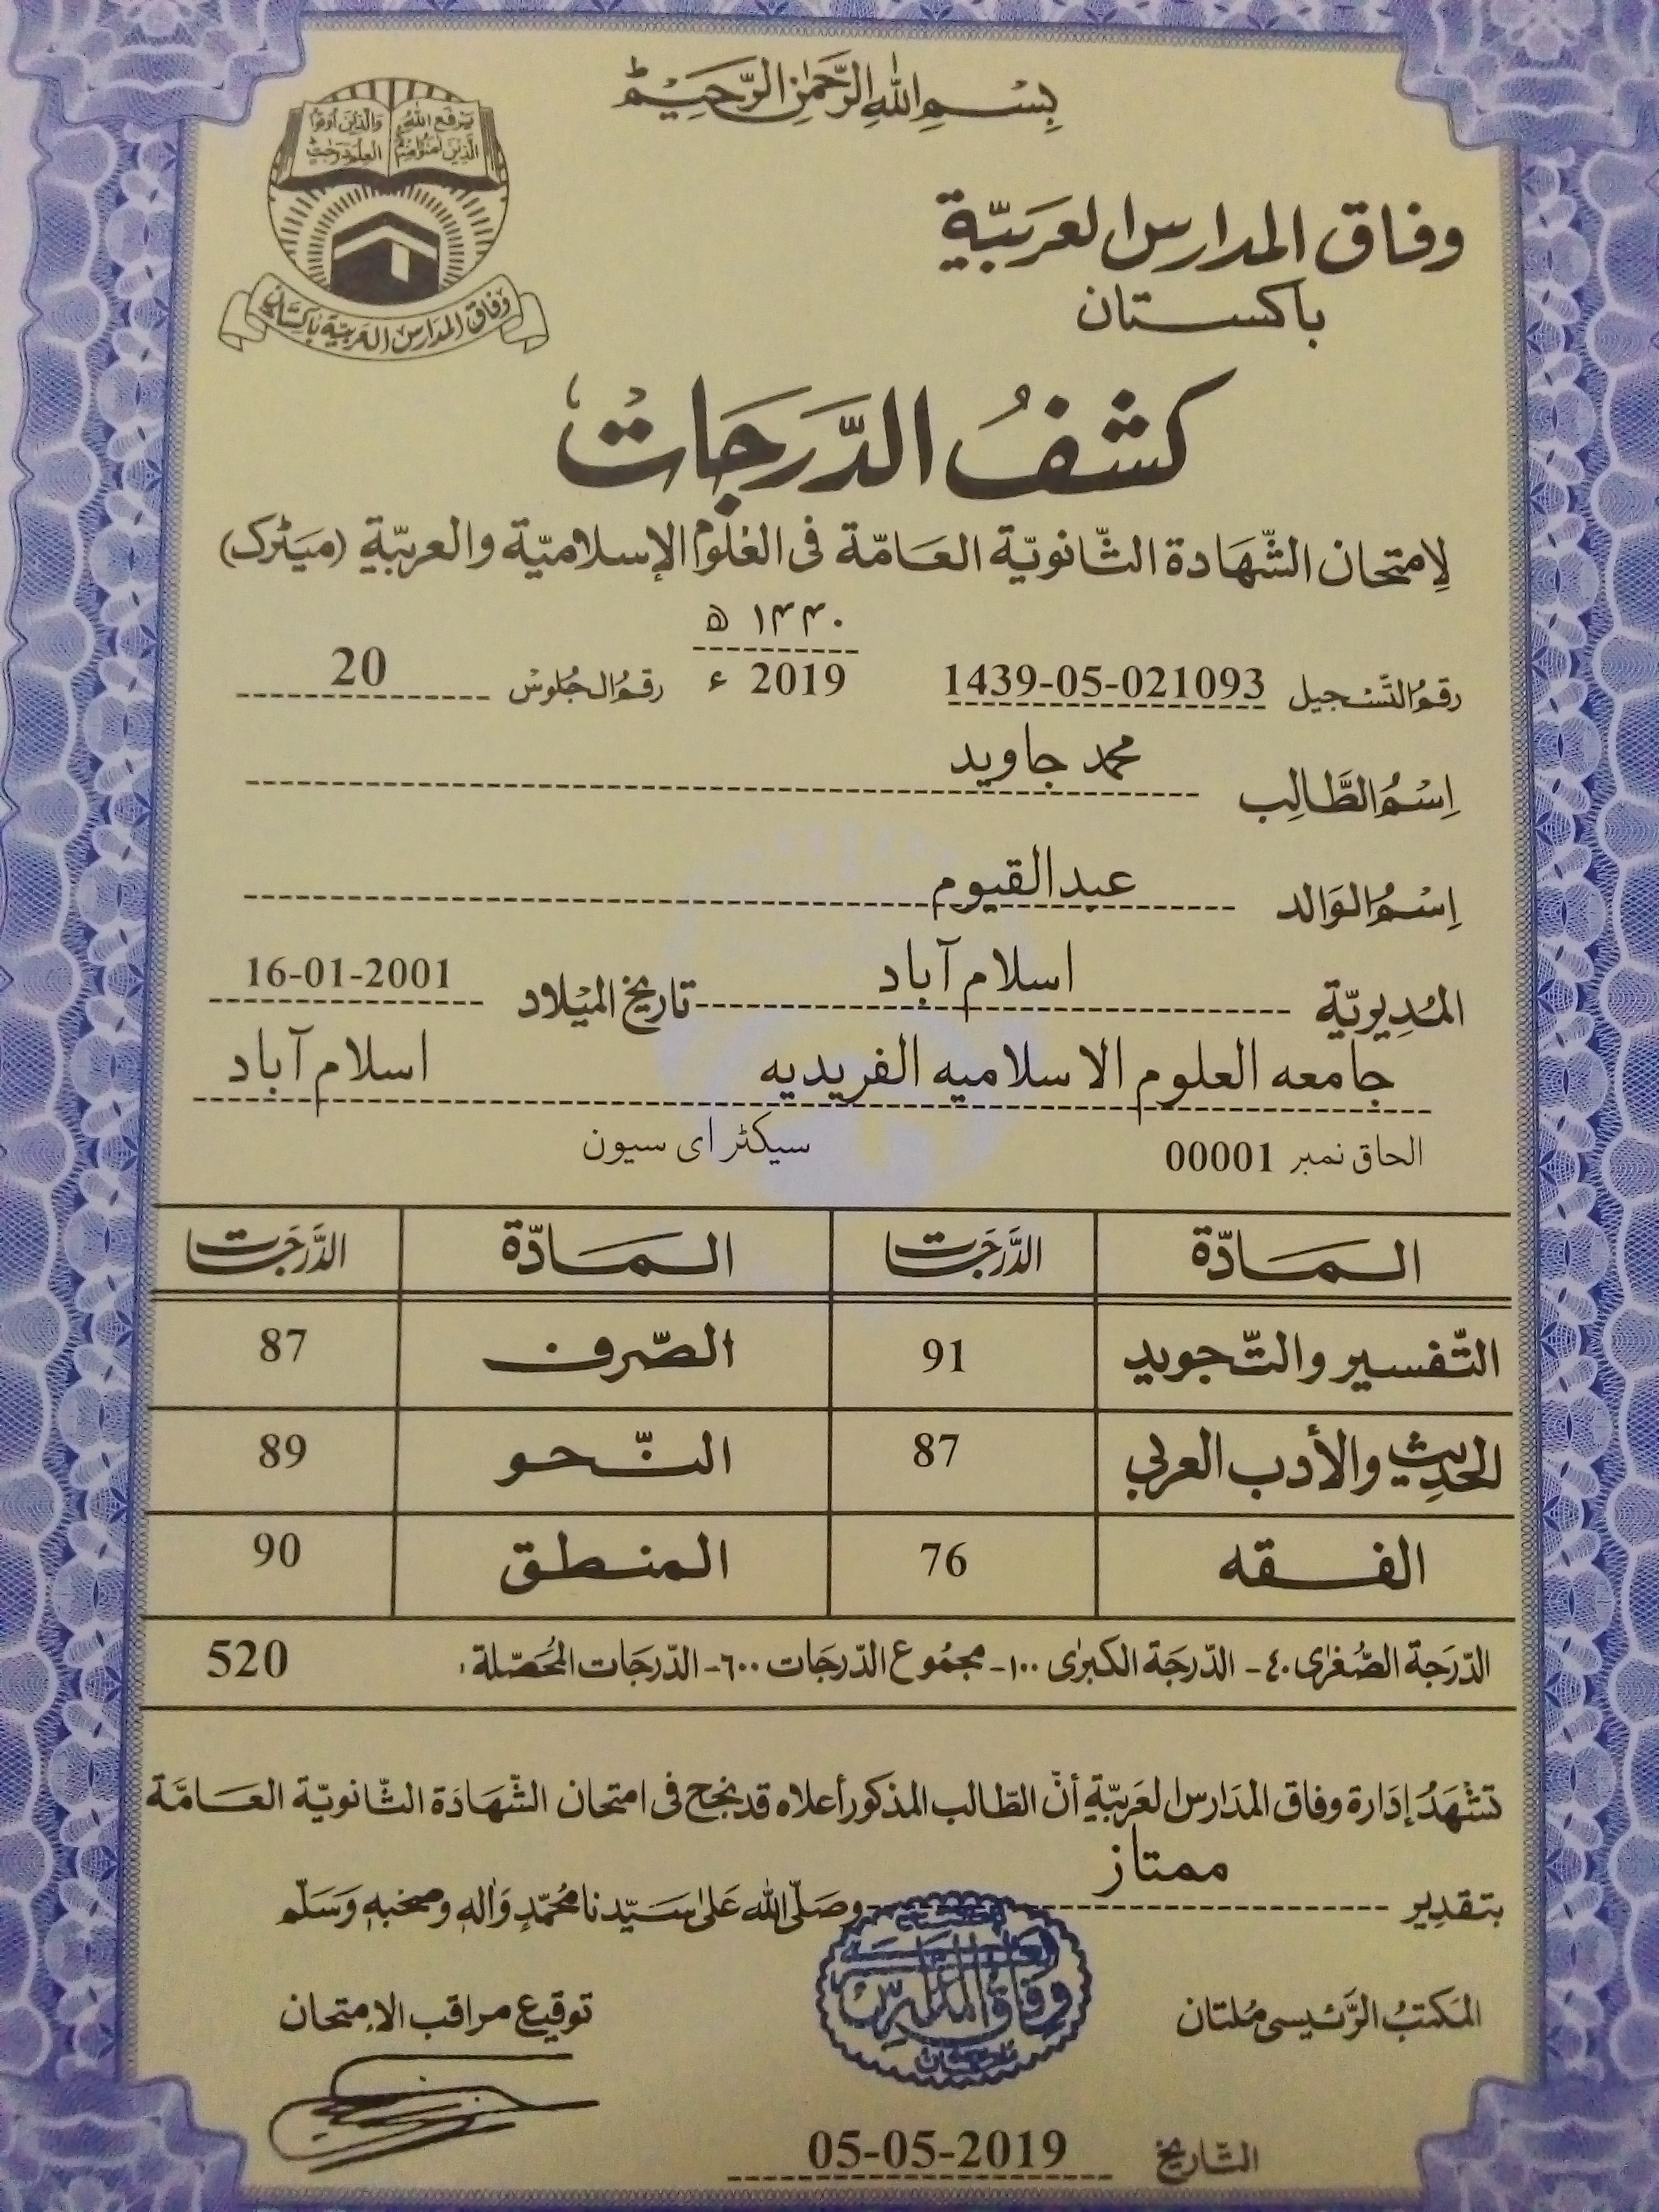 بِسْمِ اللهِ الرَّحْمٰنِ الرَّحِيْمِ
يَرْفَعِ اللهُ الَّذِيْنَ اٰمَنُوْا مِنْكُمْ
وَالَّذِيْنَ أُوْتُوا الْعِلْمَ دَرَجٰتٍ
وفاق المدارس العربيّة باكستان
وفاق المدارس العربيّة
باكستان
كشفُ الدَّرَجَاتْ
لِامتحان الشّهَادة الثّانويّة العَامّة فى العُلوم الإسلاميّة والعربيّة (ميٹرک)
۱۴۴۰ ھ
رقمُ التَّسْجيل 1439-05-021093 2019 ء رقمُ الجُلوسْ 20
اِسْمُ الطَّالِب محمد جاوید
اِسْمُ الوَالد عبدالقیوم
المُدِيريّة اسلام آباد تاريخ الميْلاد 16-01-2001
جامعہ العلوم الاسلامیہ الفریدیہ اسلام آباد
الحاق نمبر 00001 سیکٹر ای سیون
المَادّة الدَّرَجَات المَادّة الدَّرَجَات
التّفسير والتّجويد 91 الصّرف 87
الحديث والأدب العربي 87 النّحو 89
الفقه 76 المنطق 90
الدّرَجة الصُّغرٰى ٤٠- الدّرجَة الكبرٰى ١٠٠- مجمُوع الدّرجَات ٦٠٠- الدّرجَات المُحَصّلة: 520
تشْهَدُ إدَارة وفاق المدَارس العَربيّة أنّ الطّالب المذكور أعلاه قد نجح فى امتحان الشّهَادَة الثّانويّة العَامَّة
بتقدِير ممتاز وصَلّى الله عَلىٰ سَيّدنا مُحمّدٍ وَاٰلهٖ وصحْبهٖ وَسَلّم
المَكتبُ الرَّئيسى مُلتان توقيع مراقب الاِمتحان
وفاق المدارس
التّاريخ 05-05-2019